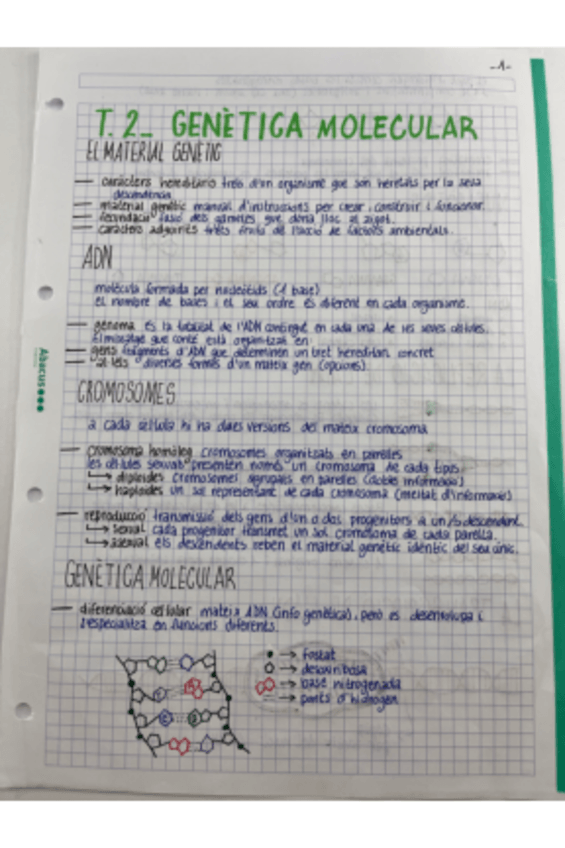 -1-
T.2_ GENÈTICA MOLECULAR
EL MATERIAL GENÈTIC
— caràcters hereditaris trets d'un organisme que són heretats per la seva
descendència.
— material genètic manual d'instruccions per crear, construir i funcionar.
— fecundació fusió dels gàmetes que dona lloc al zigot.
— caràcters adquirits trets fruits de l'acció de factors ambientals.
ADN
molècula formada per nucleòtids (1 base)
el nombre de bases i el seu ordre és diferent en cada organisme.
— genoma és la totalitat de l'ADN contingut en cada una de les seves cèl·lules.
El missatge que conté està organitzat en:
— gens fragments d'ADN que determinen un tret hereditari concret
— al·lels diverses formes d'un mateix gen (opcions).
CROMOSOMES
a cada cèl·lula hi ha dues versions del mateix cromosoma
— cromosoma homòleg cromosomes organitzats en parelles
les cèl·lules sexuals presenten només un cromosoma de cada tipus.
↳ diploides cromosomes agrupats en parelles (doble informació)
↳ haploides un sol representant de cada cromosoma (meitat d'informació)
— reproducció transmissió dels gens d'un o dos progenitors a un/s descendent.
↳ sexual cada progenitor transmet un sol cromosoma de cada parella.
↳ asexual els descendents reben el material genètic idèntic del seu únic.
GENÈTICA MOLECULAR
— diferenciació cel·lular mateix ADN (info genètica), però es desenvolupa i
s'especialitza en funcions diferents.
→ fosfat
→ desoxiribosa
→ base nitrogenada
→ ponts d'hidrogen
Abacus